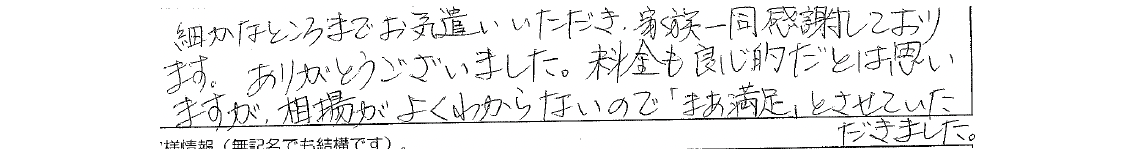 細かなところまでお気遣いいただき、家族一同感謝しており
ます。ありがとうございました。料金も良心的だとは思い
ますが、相場がよくわからないので「まあ満足」とさせていた
だきました。
様情報（無記名でも結構です）。